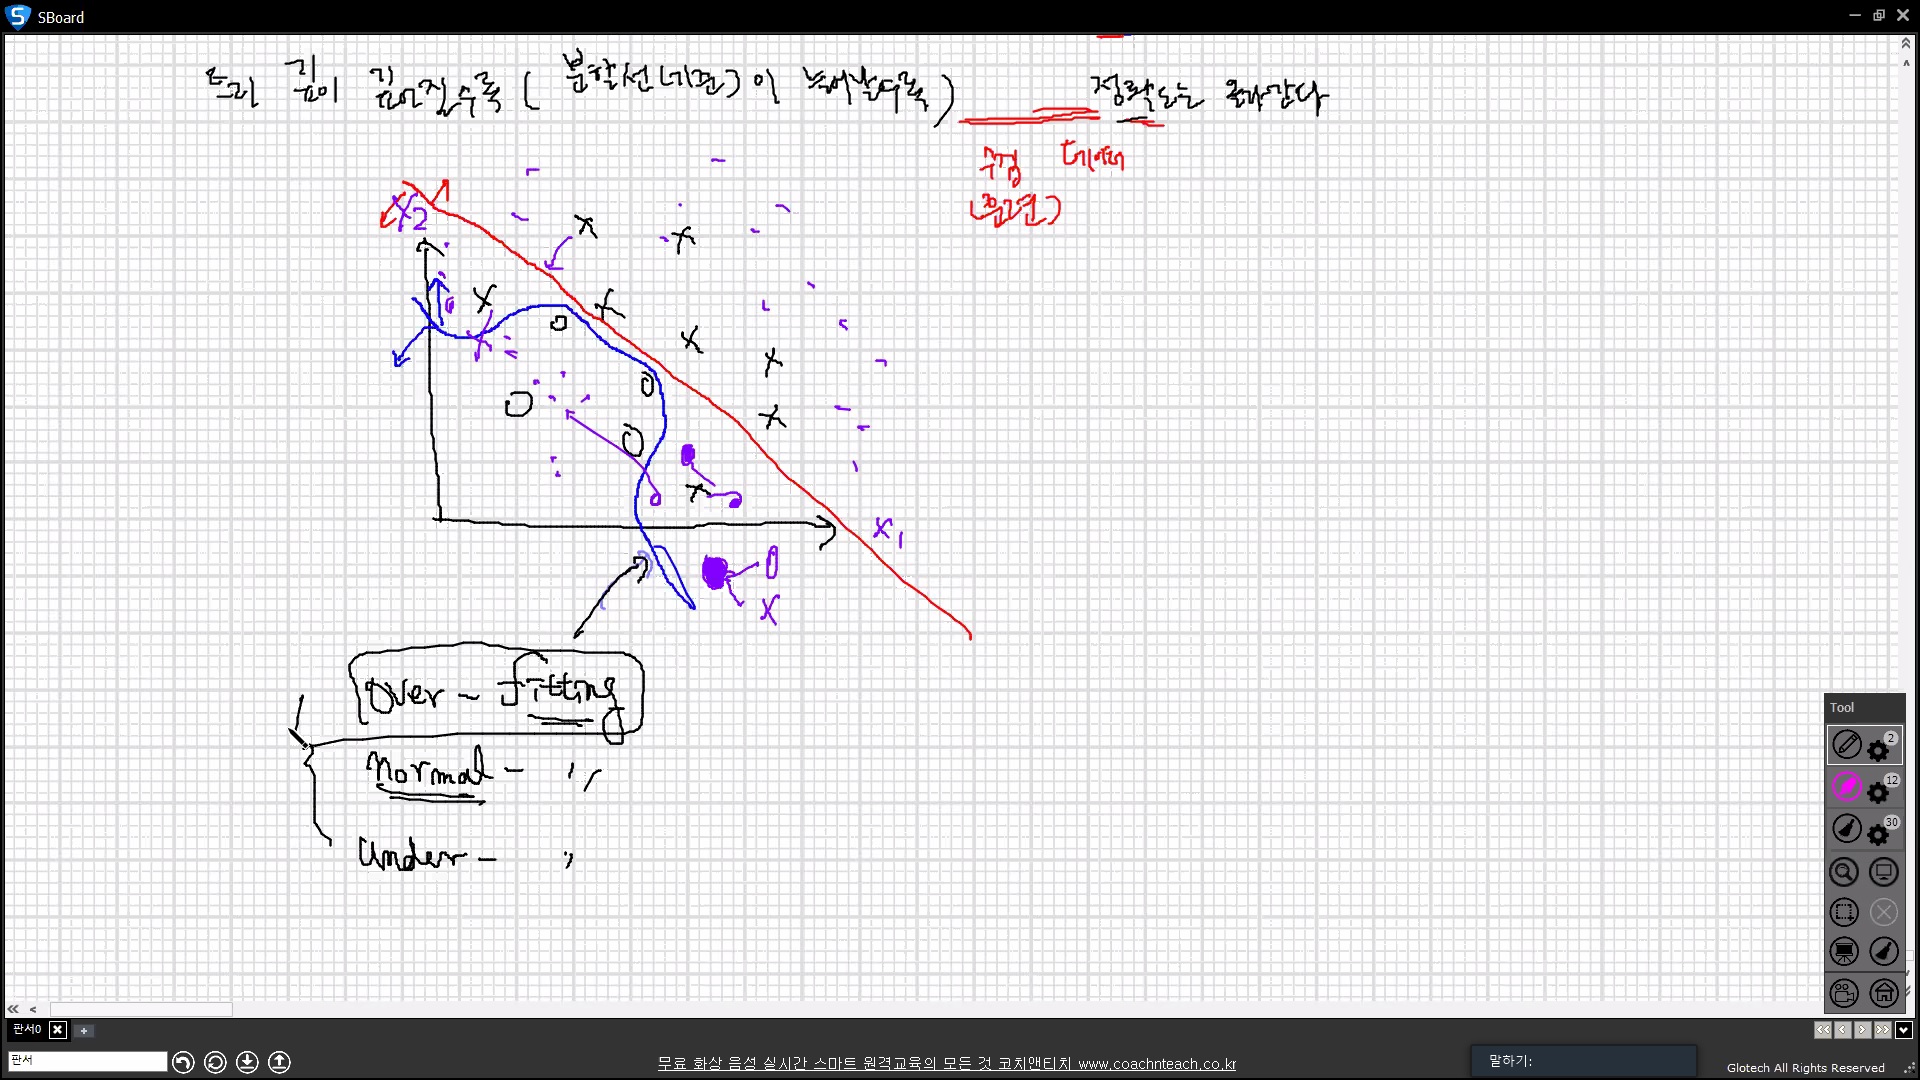 SBoard
트리 깊이 깊어질수록 ( 분할선(기준)이 늘어날수록 ) 정확도는 올라간다
수정 데이터
(훈련)
X2
X1
Over - fitting
normal - 〃
Under - 〃
Tool
2
12
30
판서0
판서
무료 화상 음성 실시간 스마트 원격교육의 모든 것 코치앤티치 www.coachnteach.co.kr
말하기:
Glotech All Rights Reserved